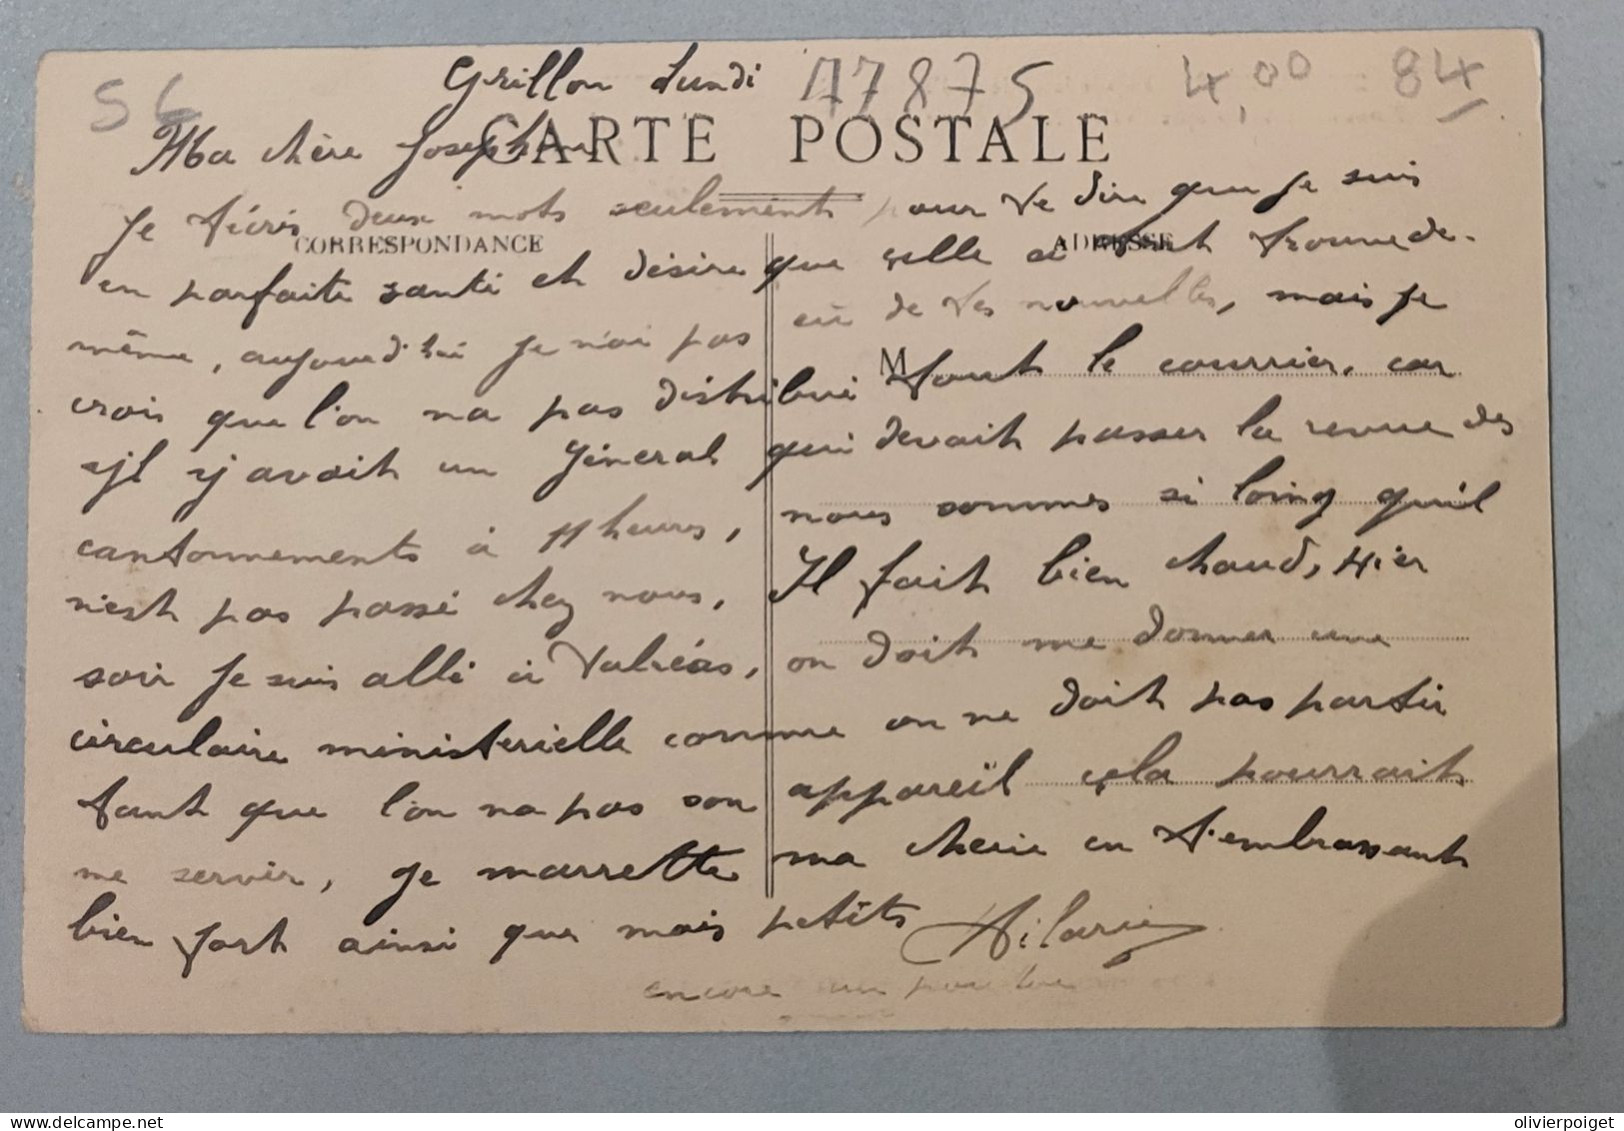 Grillon Lundi 17875 4,00 84
S6
CARTE POSTALE
Ma chère Josephine
Je t'écris deux mots seulement pour te dire que je suis
CORRESPONDANCE ADRESSE
en parfaite santé et désire que celle ci t'est trouve de
même, aujourd'hui je n'ai pas eü de tes nouvelles, mais je
M
crois que l'on na pas distribué tout le courrier, car
il y avait un Géneral qui devait passer la revue des
cantonnements à 11 heures, nous sommes si loing qu'il
n'est pas passé chez nous, Il fait bien chaud, Hier
soir je suis allé à Valréas, on doit me donner une
circulaire ministerielle comme on ne doit pas partir
tant que l'on na pas son appareïl cela pourrait
me servir, je marrette ma cherie en t'embrassant
bien fort ainsi que mais petits Hilarie
encore un
olivierpoiget